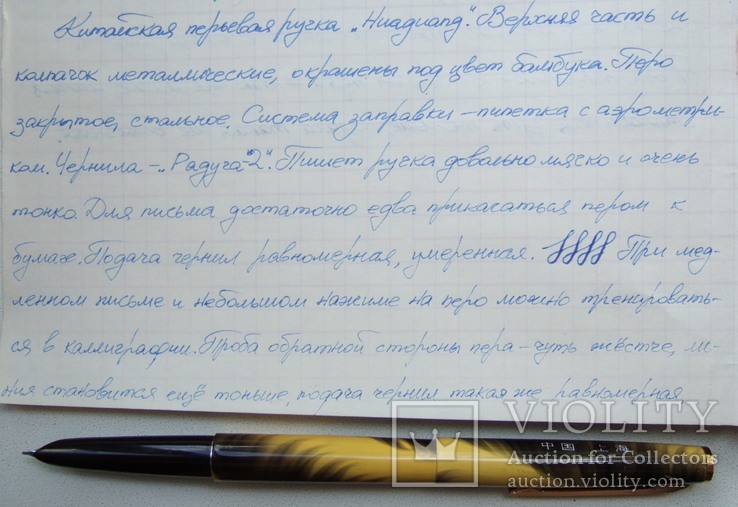 Китайская перьевая ручка „Ниадианд". Верхняя часть и
колпачок металлические, окрашены под цвет бамбука. Перо
закрытое, стальное. Система заправки – пипетка с аэрометри-
ком. Чернила – „Радуга-2". Пишет ручка довольно мягко и очень
тонко. Для письма достаточно едва прикасаться пером к
бумаге. Подача чернил равномерная, умеренная. При мед-
ленном письме и небольшом нажиме на перо можно тренировать-
ся в каллиграфии. Проба обратной стороны пера – чуть жёстче, ли-
ния становится ещё тоньше, подача чернил такая же равномерная
VIOLITY
中国 上海
Auction for Collectors
auction.violity.com